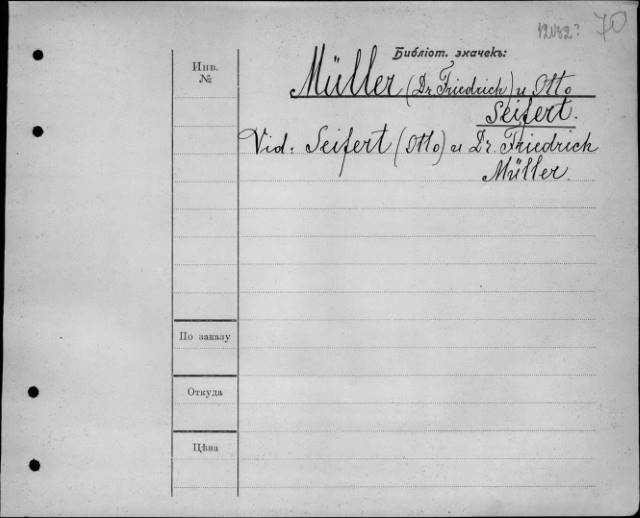 70
Библіот. значекъ:
Инв.
№
Müller (Dr. Friedrich) и Otto
Seifert.
Vid: Seifert (Otto) и Dr. Friedrich
Müller.
По заказу
Откуда
Цѣна